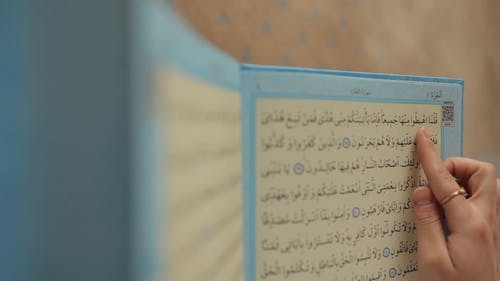 سورة البقرة
قُلْنَا اهْبِطُوا مِنْهَا جَمِيعًا فَإِمَّا يَأْتِيَنَّكُمْ مِنِّي هُدًى فَمَنْ تَبِعَ هُدَايَ
عَلَيْهِمْ وَلَا هُمْ يَحْزَنُونَ وَالَّذِينَ كَفَرُوا وَكَذَّبُوا
أَصْحَابُ النَّارِ هُمْ فِيهَا خَالِدُونَ يَا بَنِي
اذْكُرُوا نِعْمَتِيَ الَّتِي أَنْعَمْتُ عَلَيْكُمْ وَأَوْفُوا بِعَهْدِي
وَإِيَّايَ فَارْهَبُونِ وَآمِنُوا بِمَا أَنْزَلْتُ مُصَدِّقًا
وَلَا تَكُونُوا أَوَّلَ كَافِرٍ بِهِ وَلَا تَشْتَرُوا بِآيَاتِي ثَمَنًا
وَإِيَّايَ فَاتَّقُونِ وَلَا تَلْبِسُوا الْحَقَّ بِالْبَاطِلِ وَتَكْتُمُوا الْحَقَّ
تَعْلَمُونَ